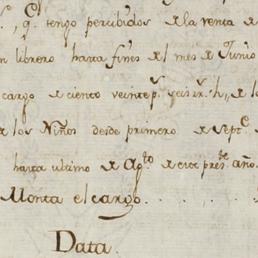 q.e tengo percibidos de la venta de
n librero hasta fines del mes de Junio
cargo de ciento veinte p.s seis r.s
a los Niños desde primero de Sept.e
hasta ultimo de Ag.to de este pres.te año
Monta el cargo
Data.